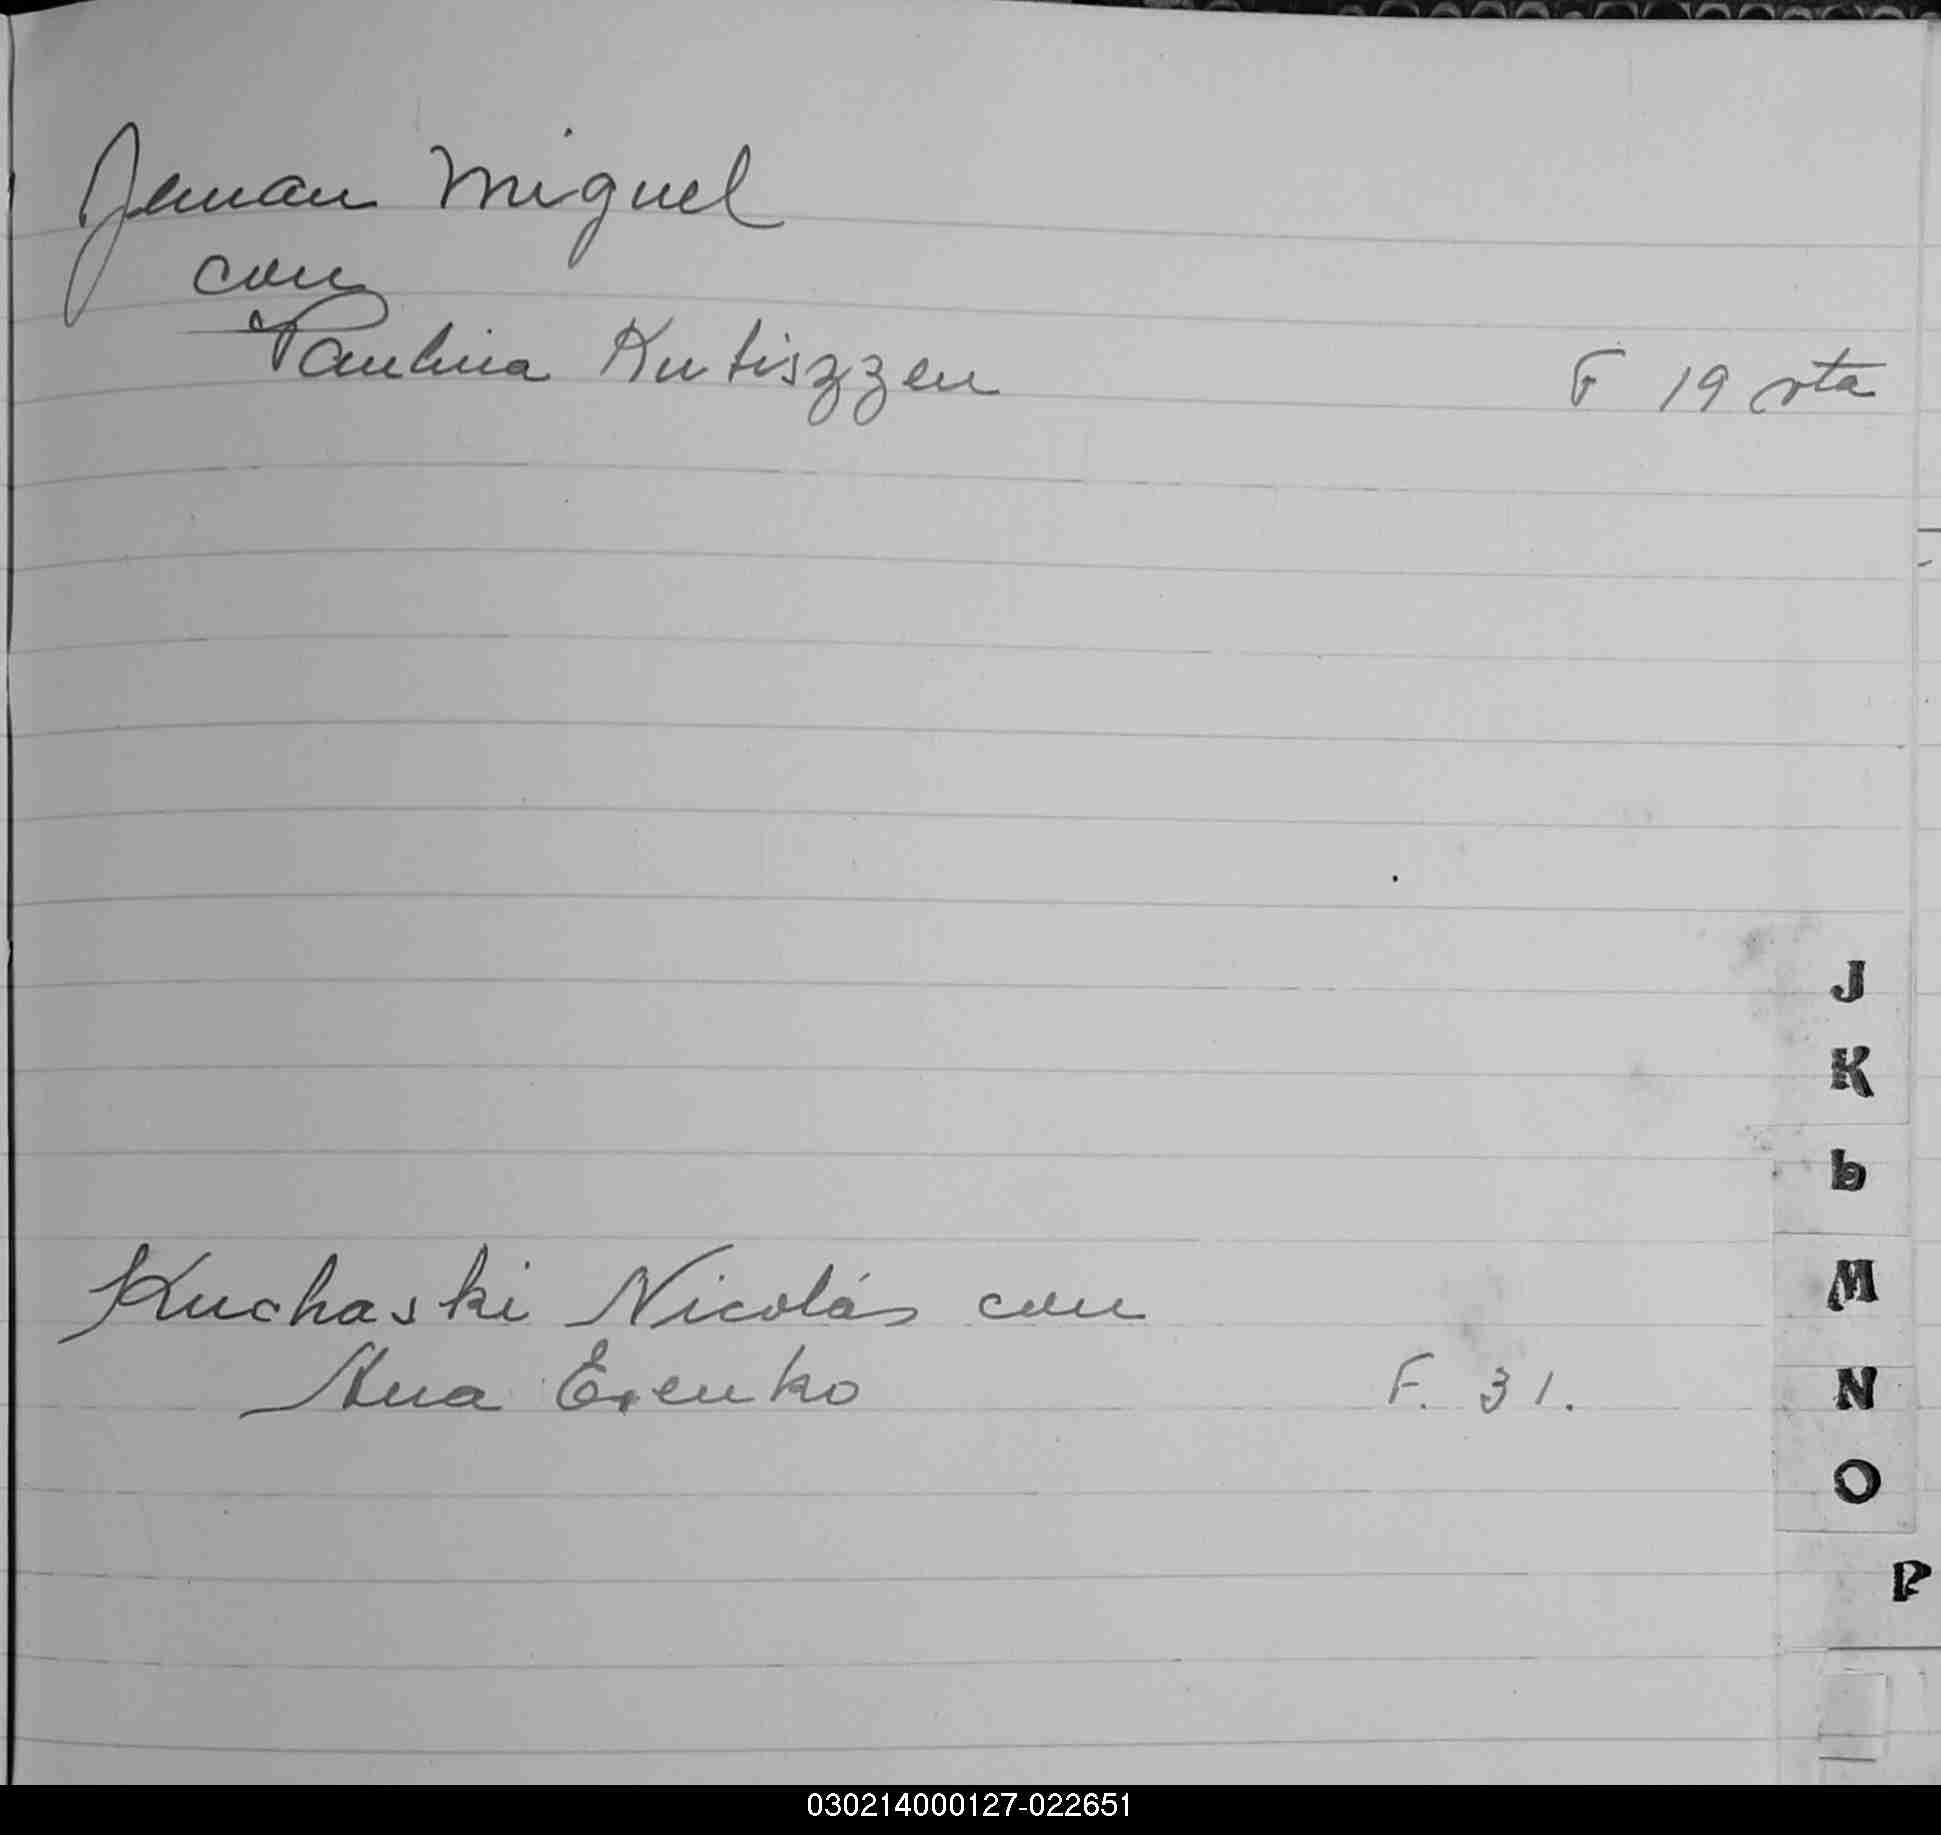 Jeman Miguel
con
Paulina Kutiszzen
F 19 vta
J
K
L
M
Kuchaski Nicolás con
Ana Erenko
F. 31.
N
O
P
030214000127-022651